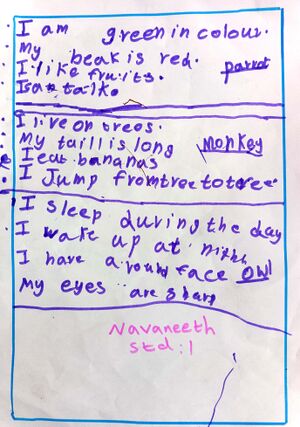 I am green in colour.
My beak is red.
I like fruits. parrot
I can talk.
I live on trees.
My taill is long monkey
I eat bananas
I Jump from tree to tree
I sleep during the day
I wake up at
I have a round face owl
My eyes are sharp
Navaneeth
Std:1